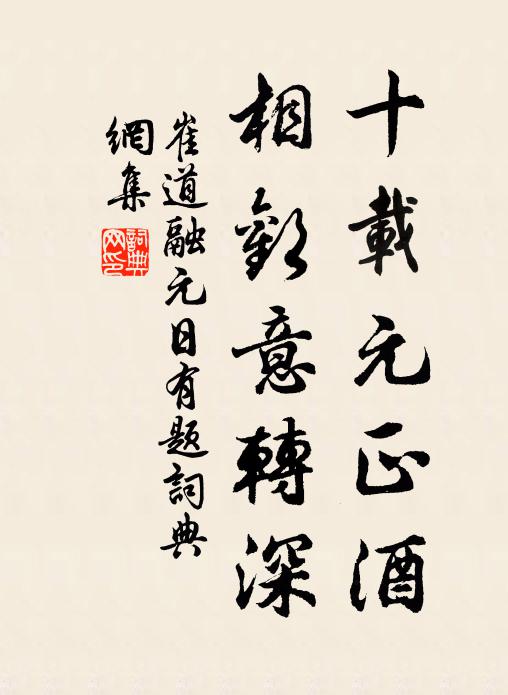 十載元正酒
相歡意轉深
崔道融元日有題詞典
網集
詞典
网印